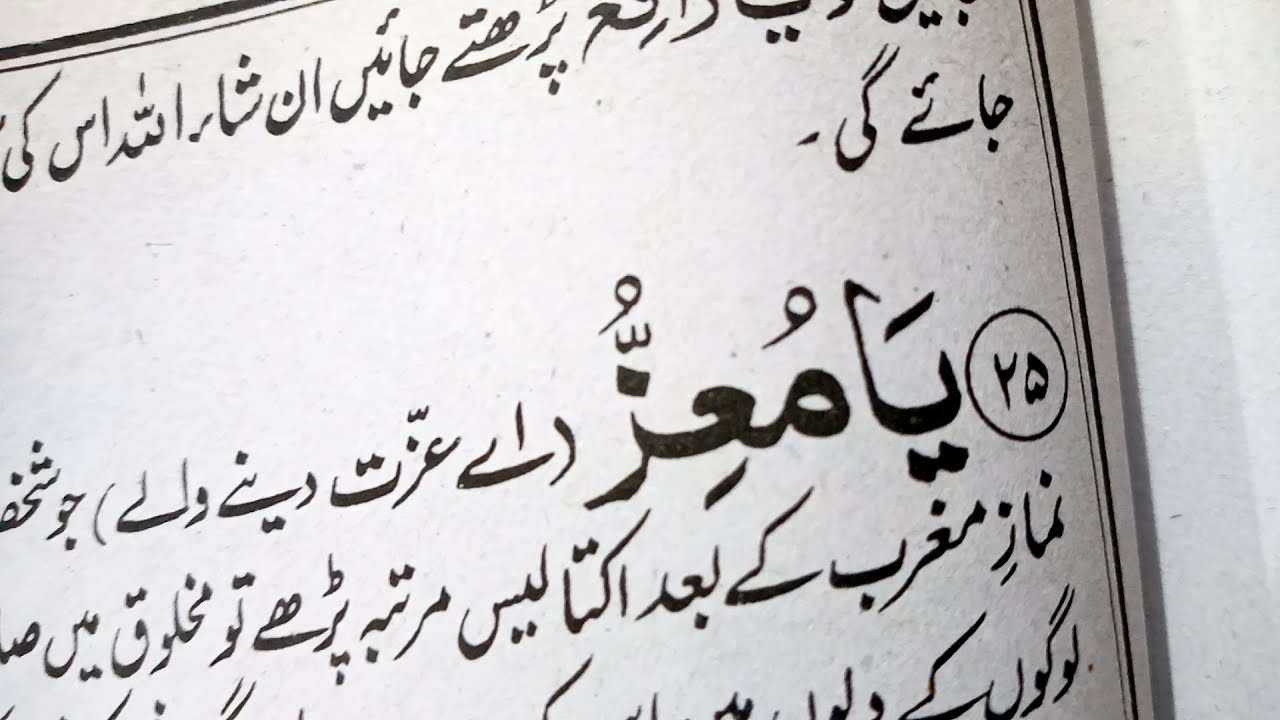 پڑھتے جائیں ان شاء اللہ اس کی
جائے گی۔
۲۵ یَا مُعِزُّ (اے عزّت دینے والے) جو
نمازِ مغرب کے بعد اکتالیس مرتبہ پڑھے تو مخلوق میں
لوگوں کے دلوں میں